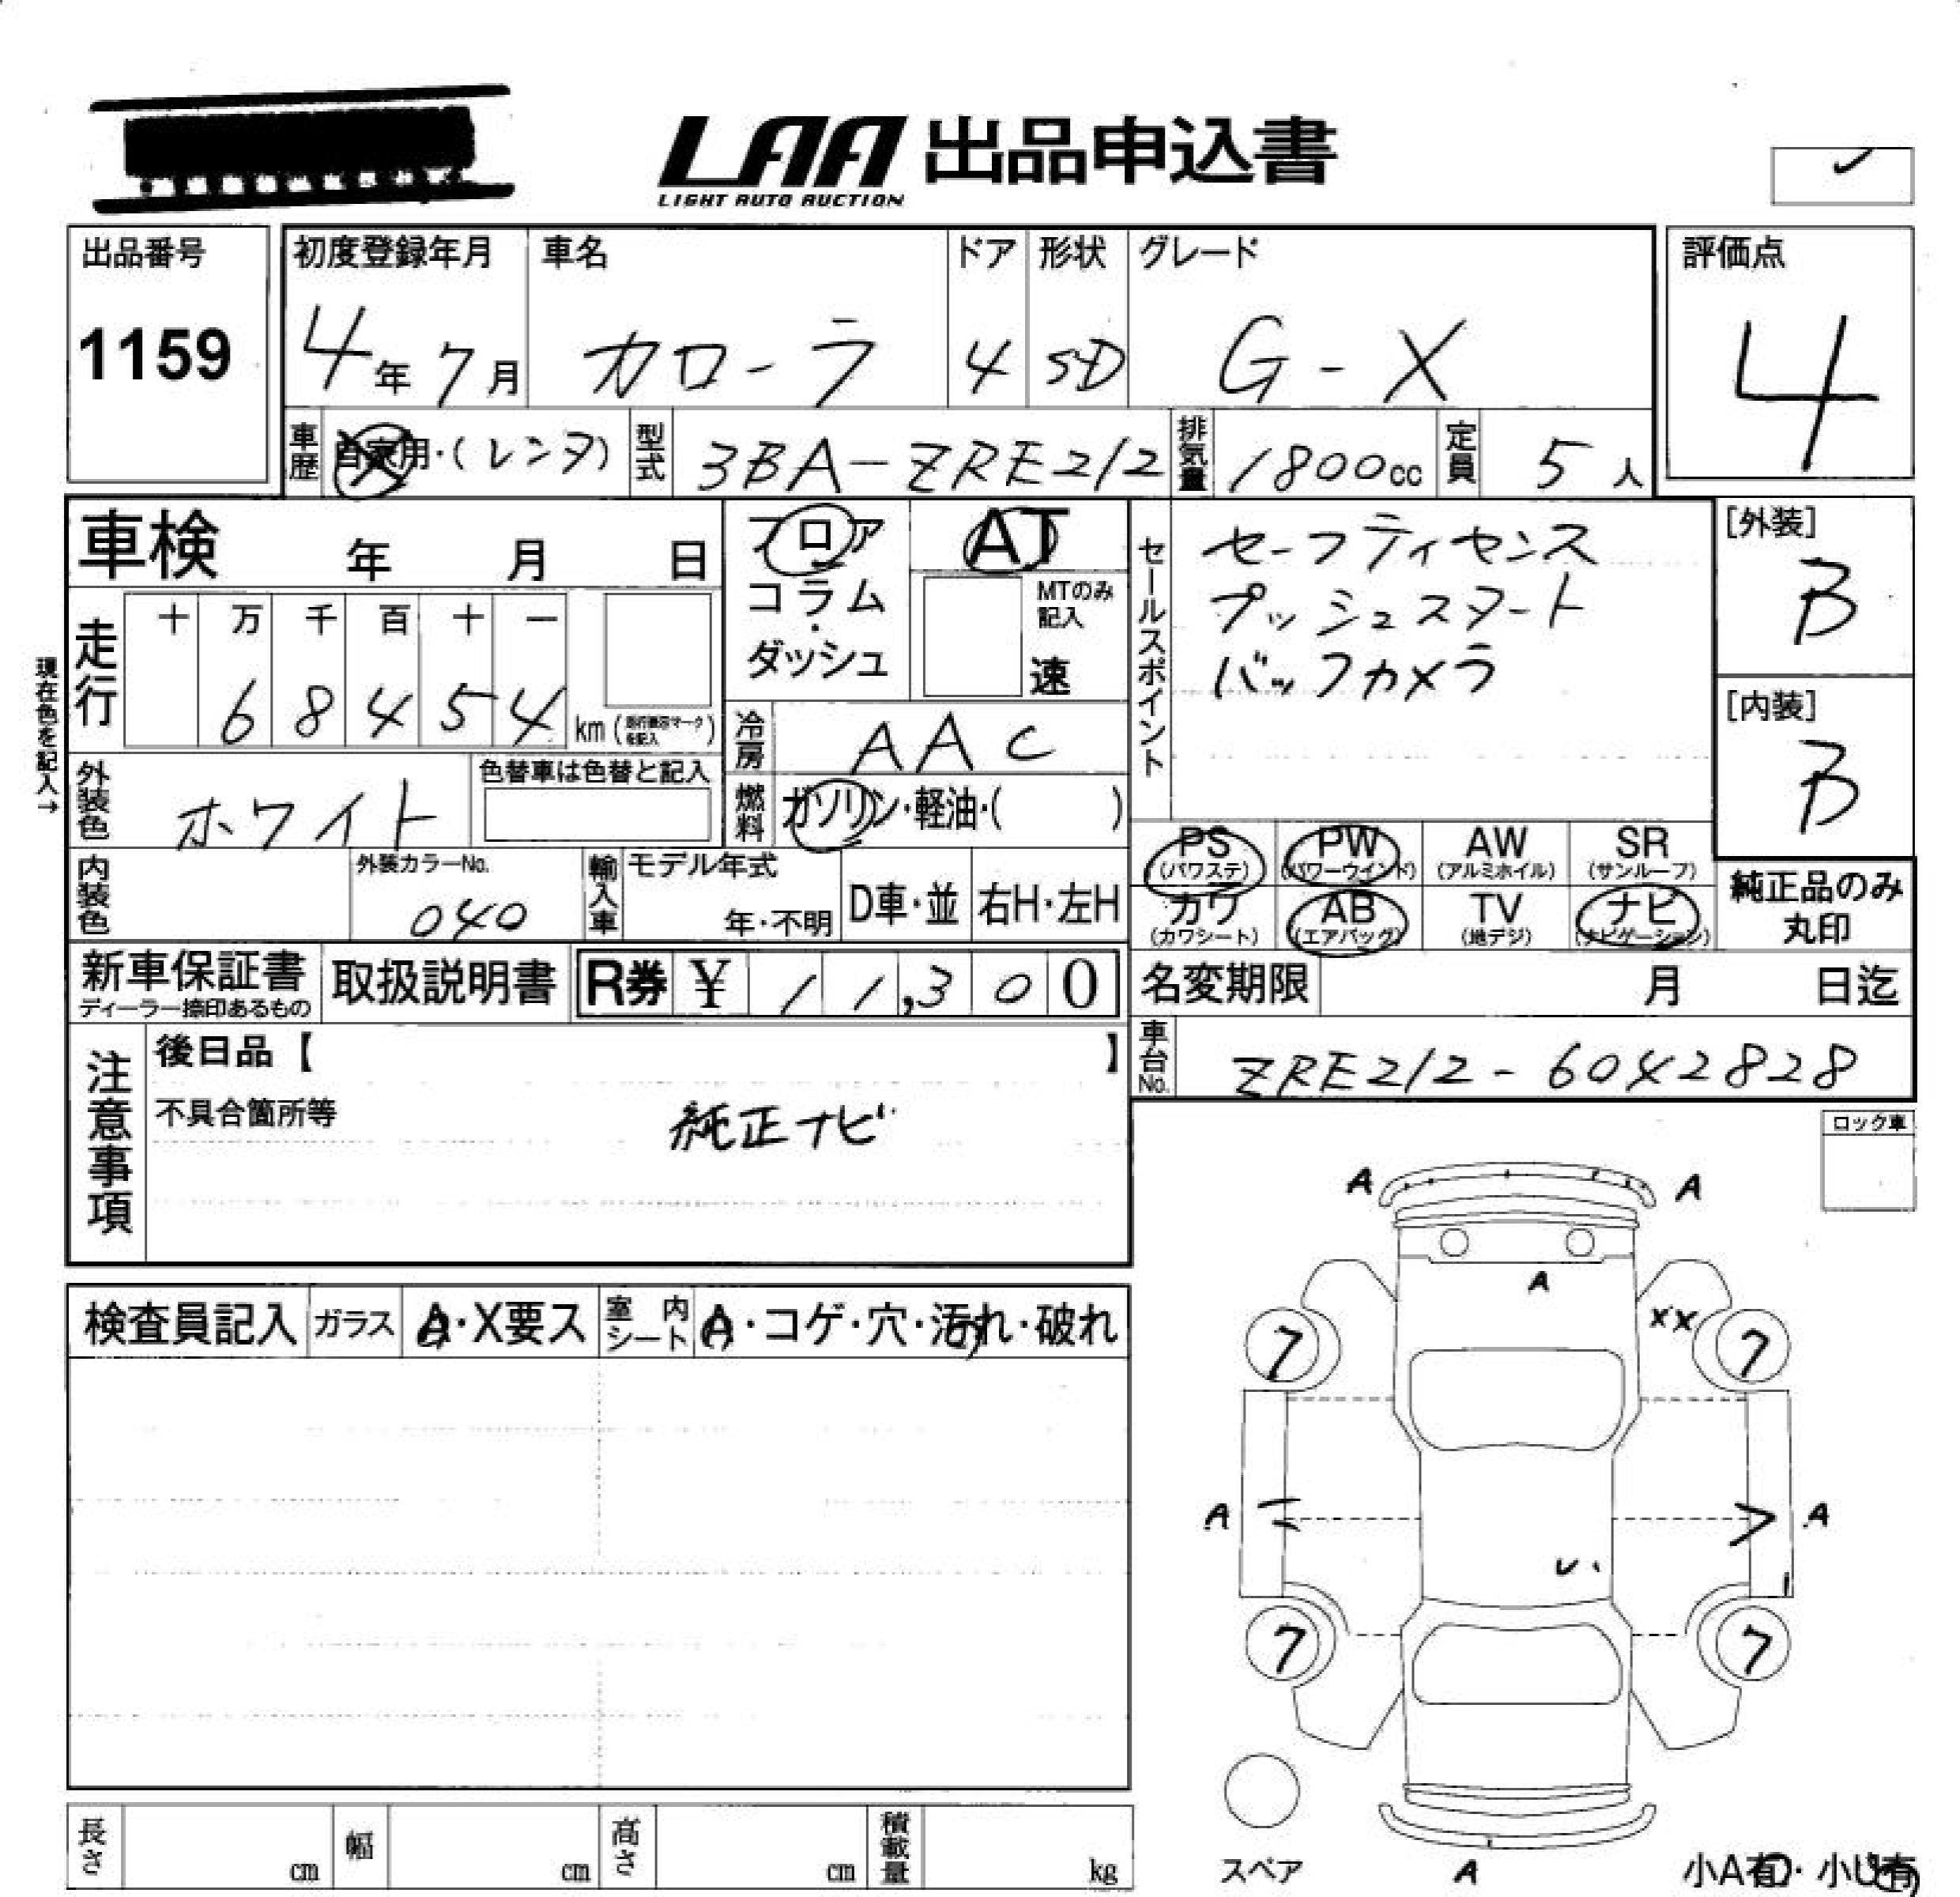 LAA 出品申込書
LIGHT AUTO AUCTION
出品番号
1159
初度登録年月 車名 ドア 形状 グレード
4年7月 カローラ 4 SD G-X
評価点
4
車歴 自家用・(レンタ) 型式 3BA-ZRE212 排気量 1800cc 定員 5人
車検 年 月 日
フロア
コラム・
ダッシュ
AT
MTのみ
記入
速
セールスポイント
セーフティセンス
プッシュスタート
バックカメラ
[外装]
B
[内装]
B
現在色を記入→
走行 十 万 千 百 十 一
6 8 4 5 4 km
冷房 AAC
外装色 ホワイト
色替車は色替と記入
燃料 ガソリン・軽油・( )
PS PW AW SR
(パワステ) (パワーウインド) (アルミホイル) (サンルーフ)
カワ AB TV ナビ
(カワシート) (エアバッグ) (地デジ) (ナビゲーション)
純正品のみ
丸印
内装色 外装カラーNo. 040
輸入車 モデル年式
年・不明 D車・並 右H・左H
新車保証書
ディーラー捺印あるもの
取扱説明書 R券 ¥ 11,300
名変期限 月 日迄
車台No. ZRE212-6042828
注意事項
後日品【 】
不具合箇所等
純正ナビ
ロック車
検査員記入 ガラス A・X要ス 室内シート A・コゲ・穴・汚れ・破れ
A A
A
XX
7 7
A A
7 7
スペア A
小A有・小U有
長さ cm 幅 cm 高さ cm 積載量 kg